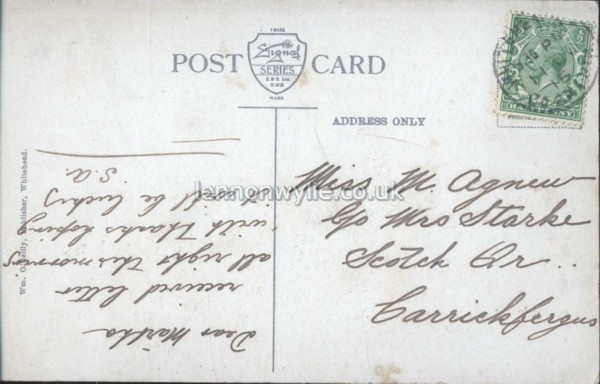 POST CARD
TRADE
Signal
SERIES
E & S Ltd
DUB
MARK
ADDRESS ONLY
Miss M. Agnew
C/o Mrs Starke
Scotch Qr..
Carrickfergus
Dear Martha
received letter
all right this morning
with thanks hoping
it will be lucky
S.A.
Wm. O. Reilly, Publisher, Whitehead.
lennonwylie.co.uk